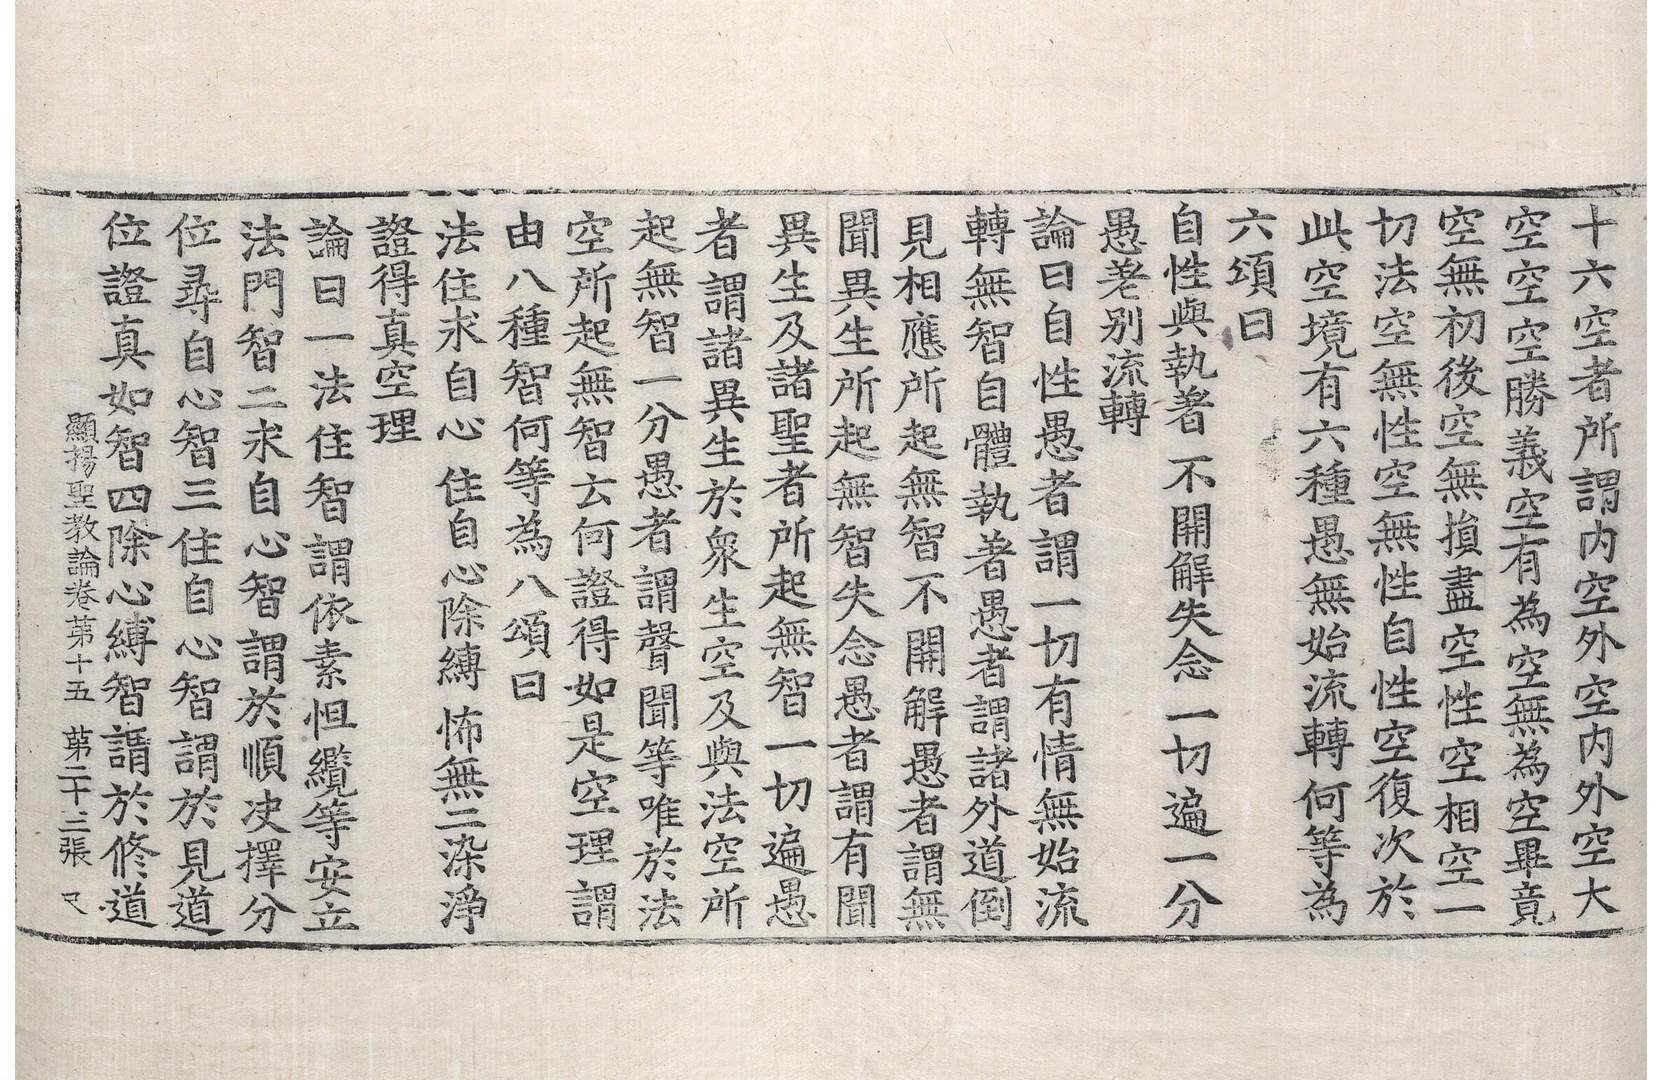 十六空者所謂内空外空内外空大
空空空勝義空有為空無為空畢竟
空無初後空無損盡空性空相空一
切法空無性空無性自性空復次於
此空境有六種愚無始流轉何等為
六頌曰
自性與執著 不開解失念 一切遍一分
愚差别流轉
論曰自性愚者謂一切有情無始流
轉無智自體執著愚者謂諸外道倒
見相應所起無智不開解愚者謂無
聞異生所起無智失念愚者謂有聞
異生及諸聖者所起無智一切遍愚
者謂諸異生於衆生空及與法空所
起無智一分愚者謂聲聞等唯於法
空所起無智云何證得如是空理謂
由八種智何等為八頌曰
法住求自心 住自心除縛 怖無二染淨
證得真空理
論曰一法住智謂依素怛纜等安立
法門智二求自心智謂於順决擇分
位尋自心智三住自心智謂於見道
位證真如智四除心縛智謂於修道
顯揚聖教論卷第十五 第二十三張 尺